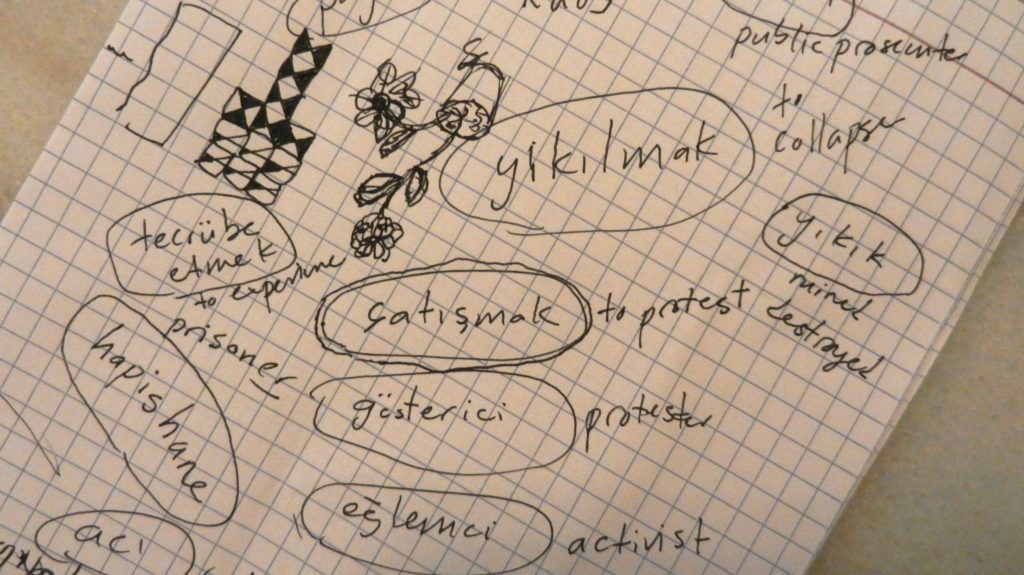 public prosecuter
to
collapse
yıkılmak
yıkık
ruined
destroyed
tecrübe
etmek
to experience
çatışmak
to protest
prisoner
hapishane
gösterici
protester
eğlemci
activist
acı